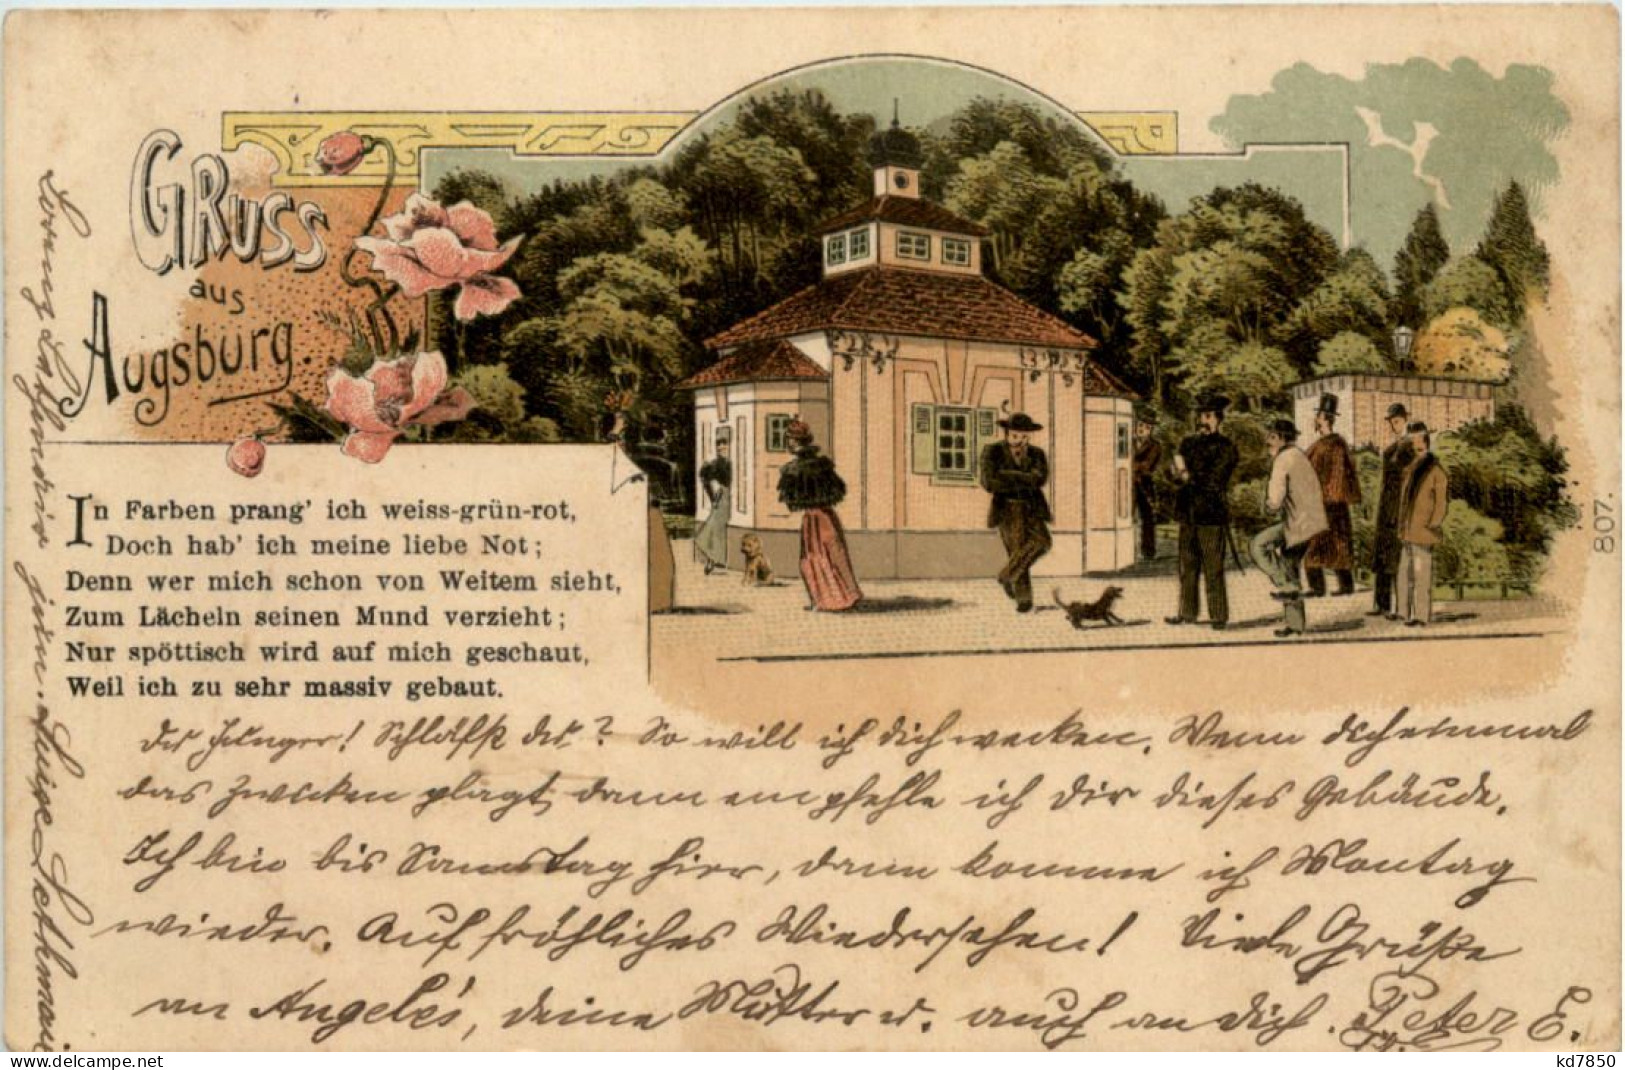 GRUSS
aus
Augsburg.
In Farben prang' ich weiss-grün-rot,
Doch hab' ich meine liebe Not;
Denn wer mich schon von Weitem sieht,
Zum Lächeln seinen Mund verzieht;
Nur spöttisch wird auf mich geschaut,
Weil ich zu sehr massiv gebaut.
807.
du Junger! Schläfst du? So will ich dich wecken. Wenn dich einmal
das Zwicken plagt, dann empfehle ich dir dieses Gebäude.
Ich bin bis Samstag hier, dann komme ich Montag
wieder. Auf fröhliches Wiedersehen! Viele Grüße
an Angele's, deine Mutter u. auch an dich. Peter E.
Luise
kd7850